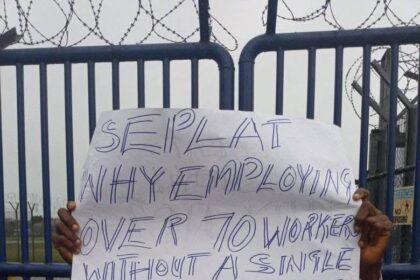 SEPLAT
WHY EMPLOYING
OVER 70 WORKERS
WITHOUT A SINGLE